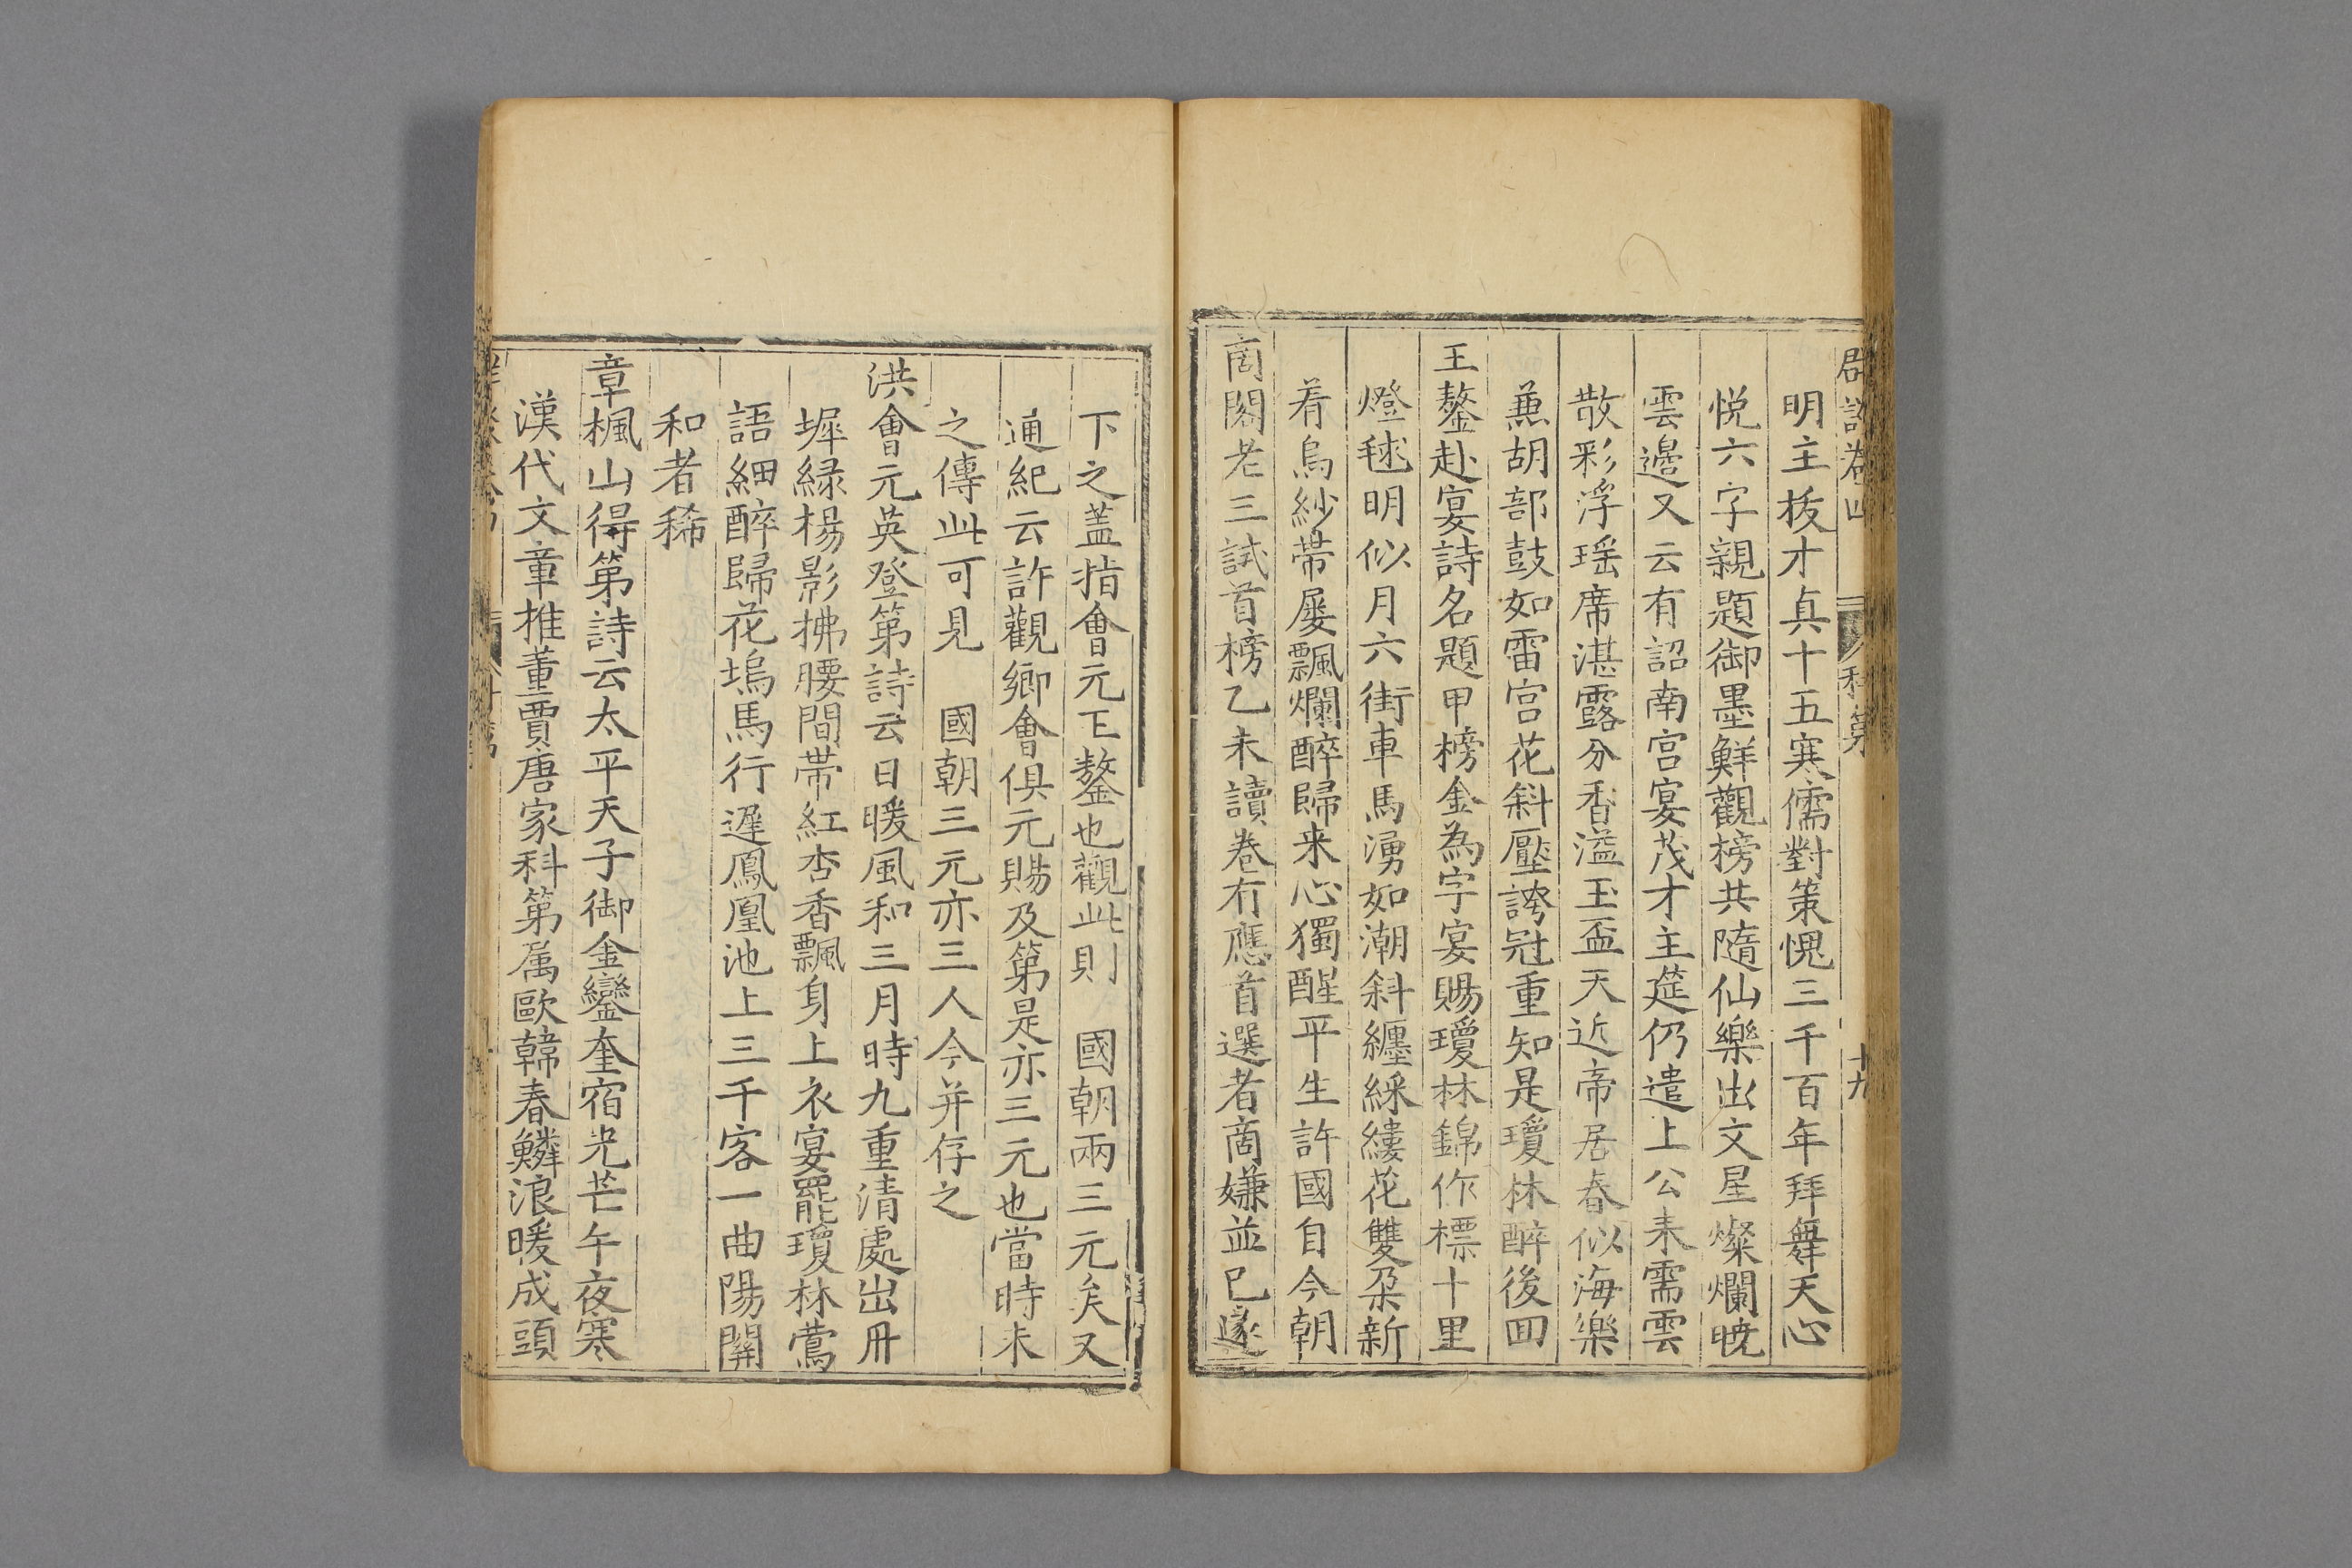 明主扳才真十五寒儒對策愧三千百年拜舞天心
悦六字親題御墨鮮觀榜共隨仙樂出文星燦爛暁
雲邉又云有詔南宫宴茂才主莚仍遣上公来需雲
散彩浮瑶席湛露分香溢玉盃天近帝居春似海樂
蒹胡部鼓如雷宫花斜壓誇冠重知是瓊林醉後囬
王鏊赴宴詩名題甲榜金為字宴賜瓊林錦作標十里
燈毬明似月六街車馬湧如潮斜纏綵縷花雙朶新
着烏紗帶屡飄爛醉歸来心獨醒平生許國自今朝
商閣老三試首榜乙未讀卷冇應首選者商嫌並已遂
下之蓋指會元王鏊也觀此則　國朝兩三元矣又
通紀云許觀鄉會俱元賜及第是亦三元也當時未
之傳此可見　國朝三元亦三人今并存之
洪會元英登第詩云日暖風和三月時九重清處出丹
墀緑楊影拂腰間帶紅杏香飄身上衣宴罷瓊林鶯
語細醉歸花塢馬行遲鳳凰池上三千客一曲陽関
和者稀
章楓山得第詩云太平天子御金鑾奎宿光芒午夜寒
漢代文章推董賈唐家科第属歐韓春鱗浪暖成頭